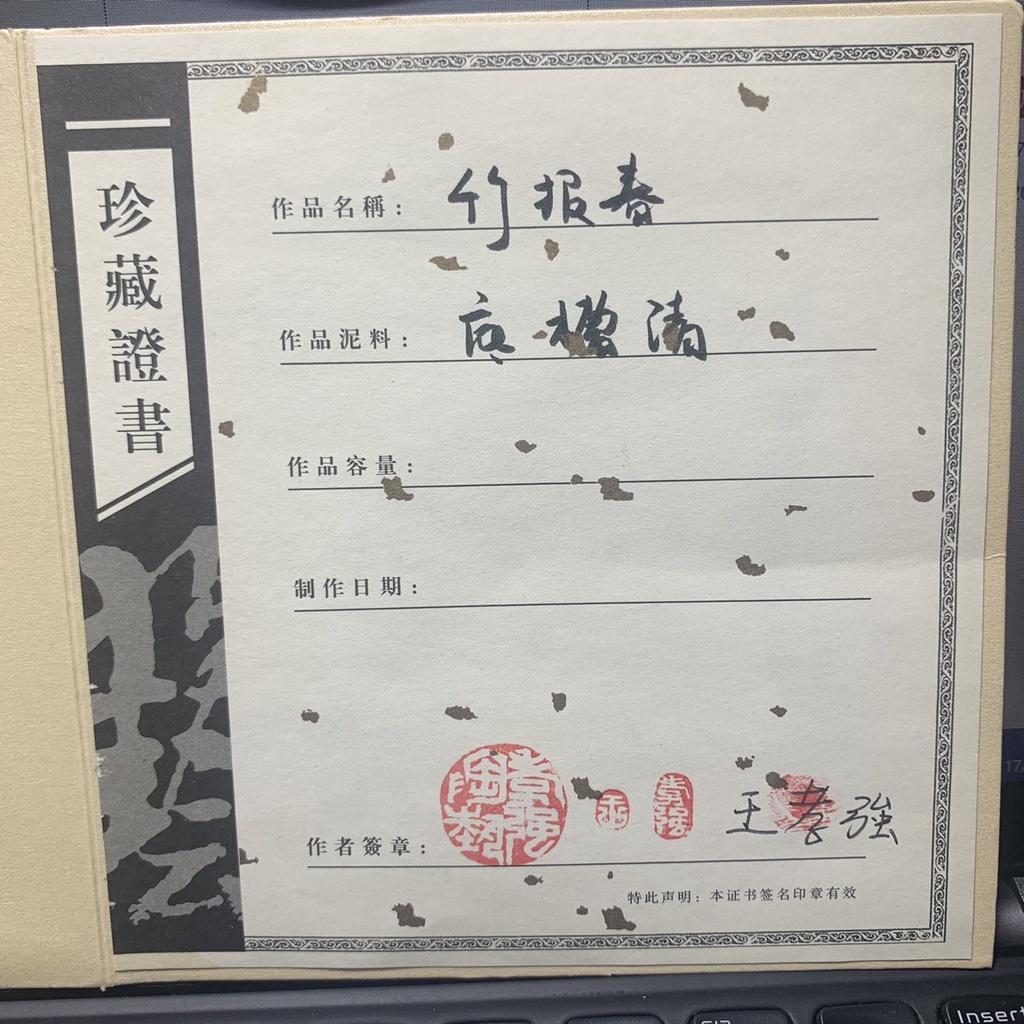 珍藏證書
作品名稱：竹报春
作品泥料：底槽清
作品容量：
制作日期：
作者簽章：孝强陶藝 王 孝强 王孝強
特此声明：本证书签名印章有效
Insert